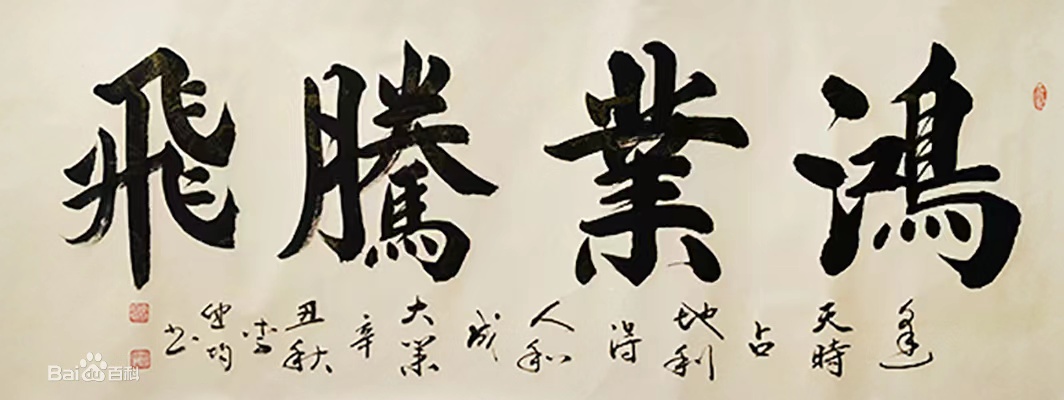 鴻業騰飛
逢
天時
占
地利
得
人和
成
大業
辛
丑秋
李
均
书
Bai百科